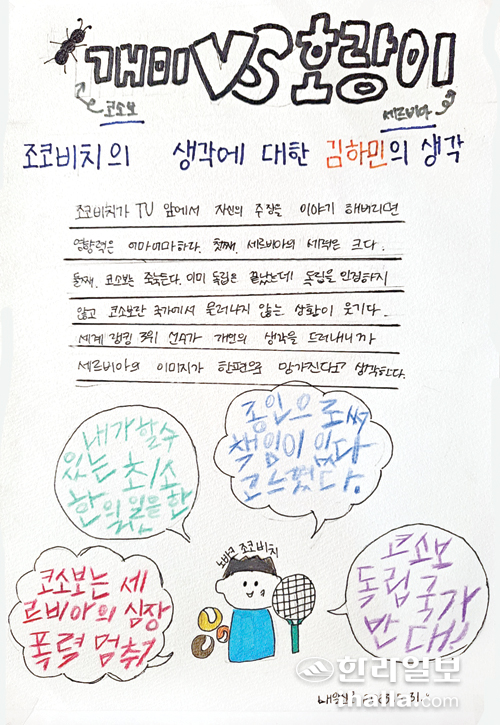 개미 VS 호랑이
코소보
세르비아
조코비치의 생각에 대한 김하민의 생각
조코비치가 TV 앞에서 자신의 주장을 이야기 해버리면
영향력은 어마어마하다. 첫째, 세르비아의 세력은 크다.
둘째. 코소보는 죽는다. 이미 독립은 끝났는데 독립을 인정하지
않고 코소보란 국가에서 물러나지 않는 상황이 웃기다.
세계 랭킹 3위 선수가 개인의 생각을 드러내니까
세르비아의 이미지가 한편으로 망가진다고 생각한다.
내가 할 수
있는 최소
한의 일은 한
공인으로써
책임이 있다
고 느꼈다.
노바크 조코비치
코소보는 세
르비아의 심장
폭력 멈춰
코소보
독립국가
반대!
한라일보
ihalla.com